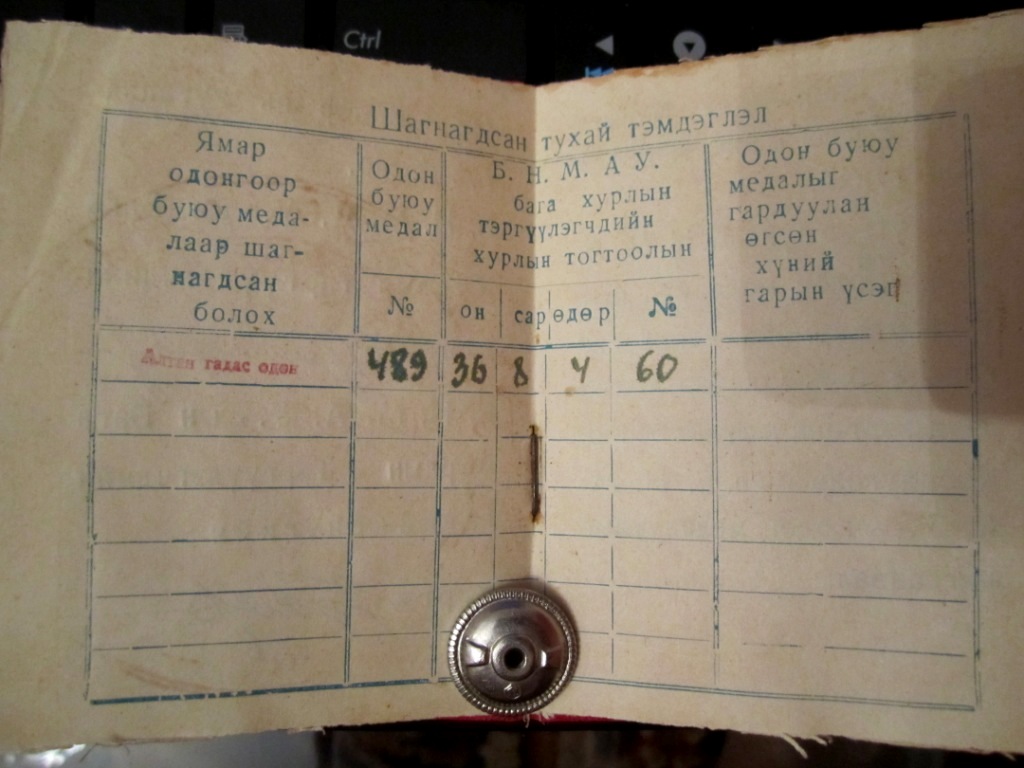 Ctrl
Шагнагдсан тухай тэмдэглэл
Ямар
одонгоор
буюу меда-
лаар шаг-
нагдсан
болох
Одон
буюу
медал
№
Б. Н. М. А У.
бага хурлын
тэргүүлэгчдийн
хурлын тогтоолын
он сар өдөр №
Одон буюу
медалыг
гардуулан
өгсөн
хүний
гарын үсэг
Алтан гадас одон 489 36 8 4 60